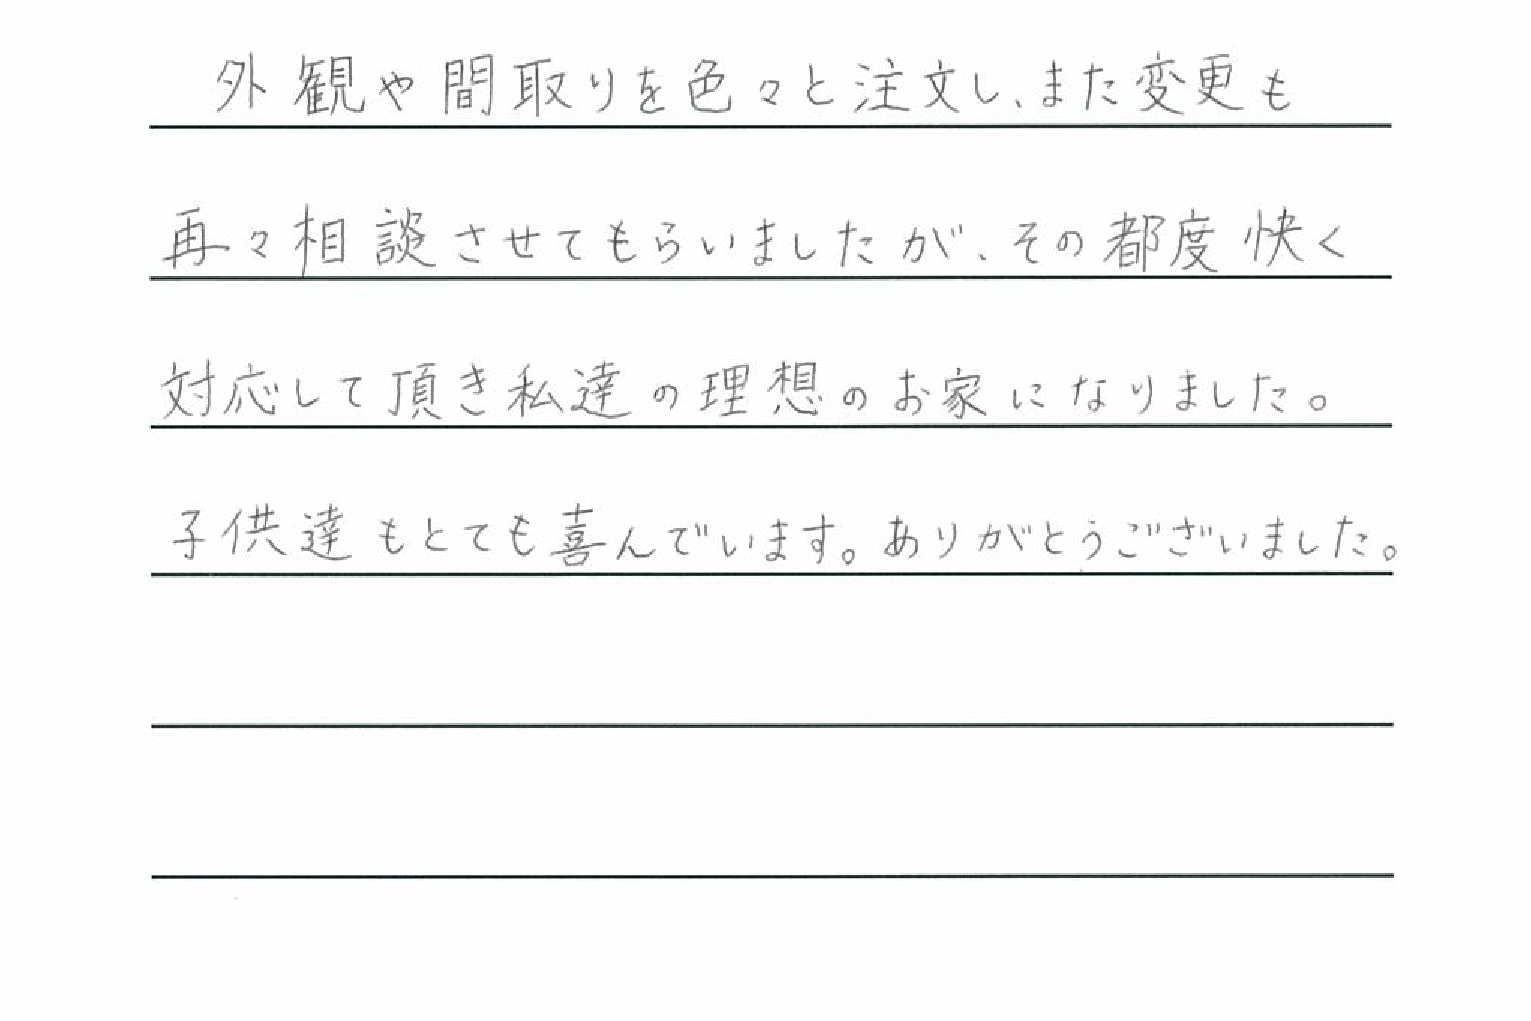 外観や間取りを色々と注文し、また変更も
再々相談させてもらいましたが、その都度快く
対応して頂き私達の理想のお家になりました。
子供達もとても喜んでいます。ありがとうございました。